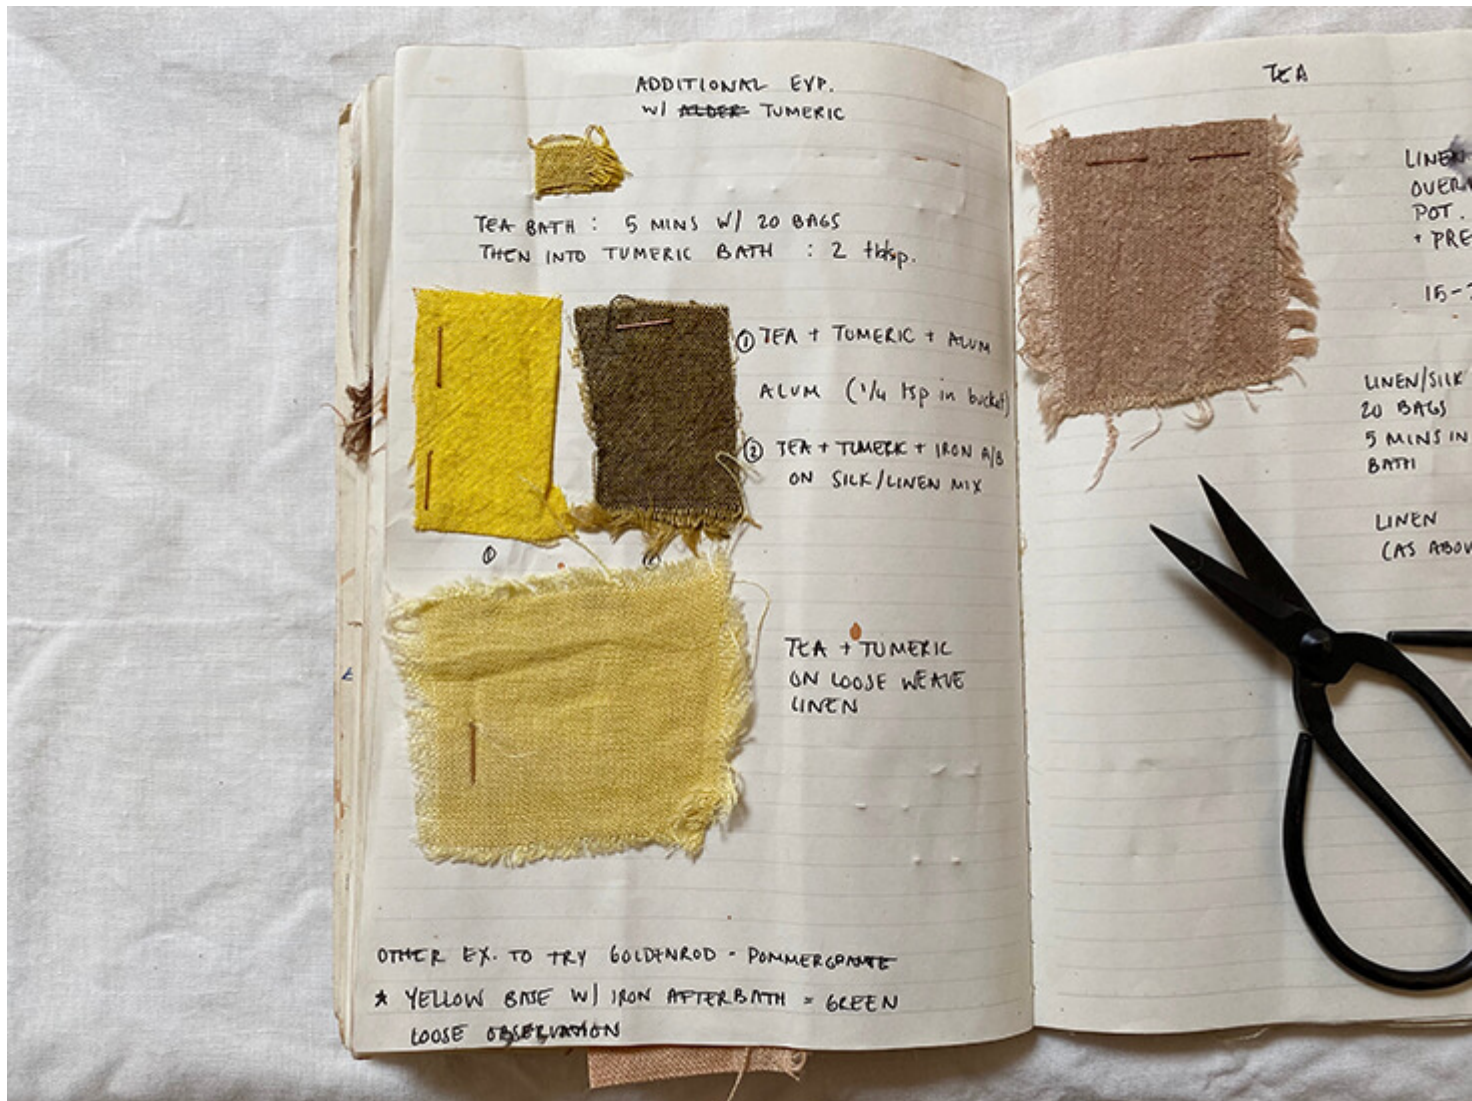 ADDITIONAL EXP.
W/ ALDER TUMERIC
TEA BATH : 5 MINS W/ 20 BAGS
THEN INTO TUMERIC BATH : 2 tblsp.
① TEA + TUMERIC + ALUM
ALUM (1/4 tsp in bucket)
② TEA + TUMERIC + IRON A/B
ON SILK/LINEN MIX
①
TEA + TUMERIC
ON LOOSE WEAVE
LINEN
OTHER EX. TO TRY GOLDENROD - POMMERGRANTE
* YELLOW BASE W/ IRON AFTERBATH = GREEN
LOOSE OBSERVATION
TEA
LINEN
POT.
+ PRE
15-
LINEN/SILK
20 BAGS
5 MINS IN
BATH
LINEN
(AS ABOV